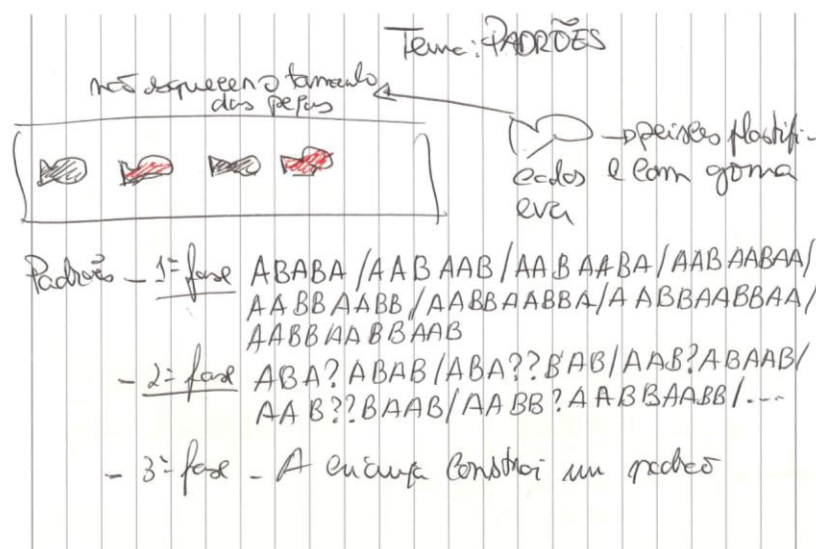 Tema: PADRÕES
não esquecer o tamanho
das peças
peixes plastifi-
cados e com goma
eva
Padrões - 1ª fase ABABA / AAB AAB / AAB AABA / AAB AABAA /
AABBAABB / AABBAABBA / AABBAABBAA /
AABBAABBAAB
- 2ª fase ABA?ABAB / ABA??BAB / AAB?ABAAB /
AAB??BAAB / AABB?AABBAABB / ...
- 3ª fase - A criança constroi um padrão